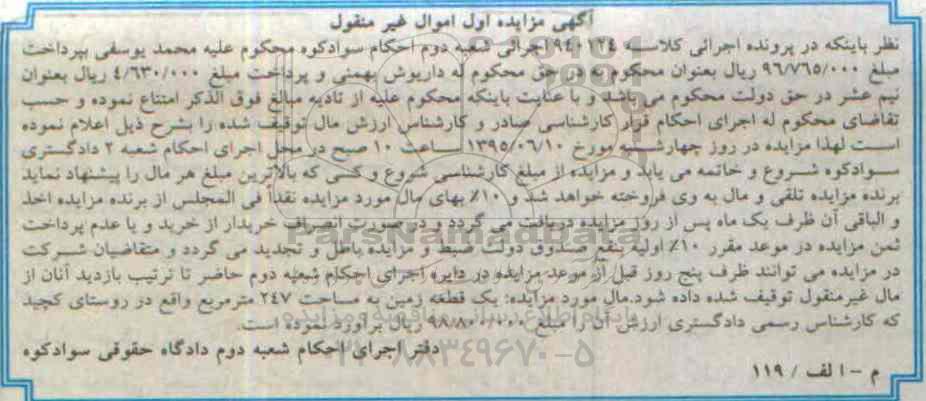 آگهی مزایده اول اموال غیر منقول
نظر باینکه در پرونده اجرائی کلاسه ۹۴۰۱۲۴ اجرائی شعبه دوم احکام سوادکوه محکوم علیه محمد یوسفی بپرداخت
مبلغ ۹۶/۷۶۵/۰۰۰ ریال بعنوان محکوم به در حق محکوم له داریوش بهمنی و پرداخت مبلغ ۴/۶۳۰/۰۰۰ ریال بعنوان
نیم عشر در حق دولت محکوم می باشد و با عنایت باینکه محکوم علیه از تادیه مبالغ فوق الذکر امتناع نموده و حسب
تقاضای محکوم له اجرای احکام قرار کارشناسی صادر و کارشناس ارزش مال توقیف شده را بشرح ذیل اعلام نموده
است لهذا مزایده در روز چهارشنبه مورخ ۱۳۹۵/۰۶/۱۰ ساعت ۱۰ صبح در محل اجرای احکام شعبه ۲ دادگستری
سوادکوه شروع و خاتمه می یابد و مزایده از مبلغ کارشناسی شروع و کسی که بالاترین مبلغ هر مال را پیشنهاد نماید
برنده مزایده تلقی و مال به وی فروخته خواهد شد و ۱۰٪ بهای مال مورد مزایده نقداً فی المجلس از برنده مزایده اخذ
و الباقی آن ظرف یک ماه پس از روز مزایده دریافت می گردد و در صورت انصراف خریدار از خرید و یا عدم پرداخت
ثمن مزایده در موعد مقرر ۱۰٪ اولیه بنفع صندوق دولت ضبط و مزایده باطل و تجدید می گردد و متقاضیان شرکت
در مزایده می توانند ظرف پنج روز قبل از موعد مزایده در دایره اجرای احکام شعبه دوم حاضر تا ترتیب بازدید آنان از
مال غیرمنقول توقیف شده داده شود.مال مورد مزایده: یک قطعه زمین به مساحت ۲۴۷ مترمربع واقع در روستای کچید
که کارشناس رسمی دادگستری ارزش آن را مبلغ ۹۸/۸۰۰/۰۰۰ ریال برآورد نموده است.
دفتر اجرای احکام شعبه دوم دادگاه حقوقی سوادکوه
م - الف / ۱۱۹
ParsNamadData
پایگاه اطلاع رسانی مناقصه و مزایده
۰۲۱-۸۸۳۴۹۶۷۰-۵